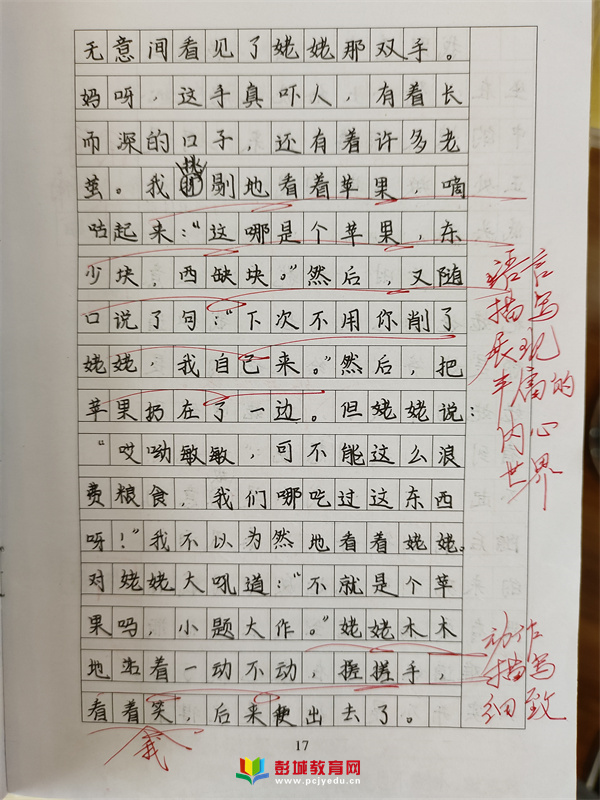 无意间看见了姥姥那双手。
妈呀，这手真吓人，有着长
而深的口子，还有着许多老
茧。我挑剔地看着苹果，嘀
咕起来：“这哪是个苹果，东
少块，西缺块。”然后，又随
口说了句：“下次不用你削了
姥姥，我自己来。”然后，把
苹果扔在了一边。但姥姥说：
“哎呦敏敏，可不能这么浪
费粮食，我们哪吃过这东西
呀！”我不以为然地看着姥姥。
对姥姥大吼道：“不就是个苹
果吗，小题大作。”姥姥木木
地站着一动不动，搓搓手，
看着笑，后来便出去了。
我
语言
描写
展现
丰富的
内心
世界
动作
描写
细致
17
彭城教育网
www.pcjyedu.cn